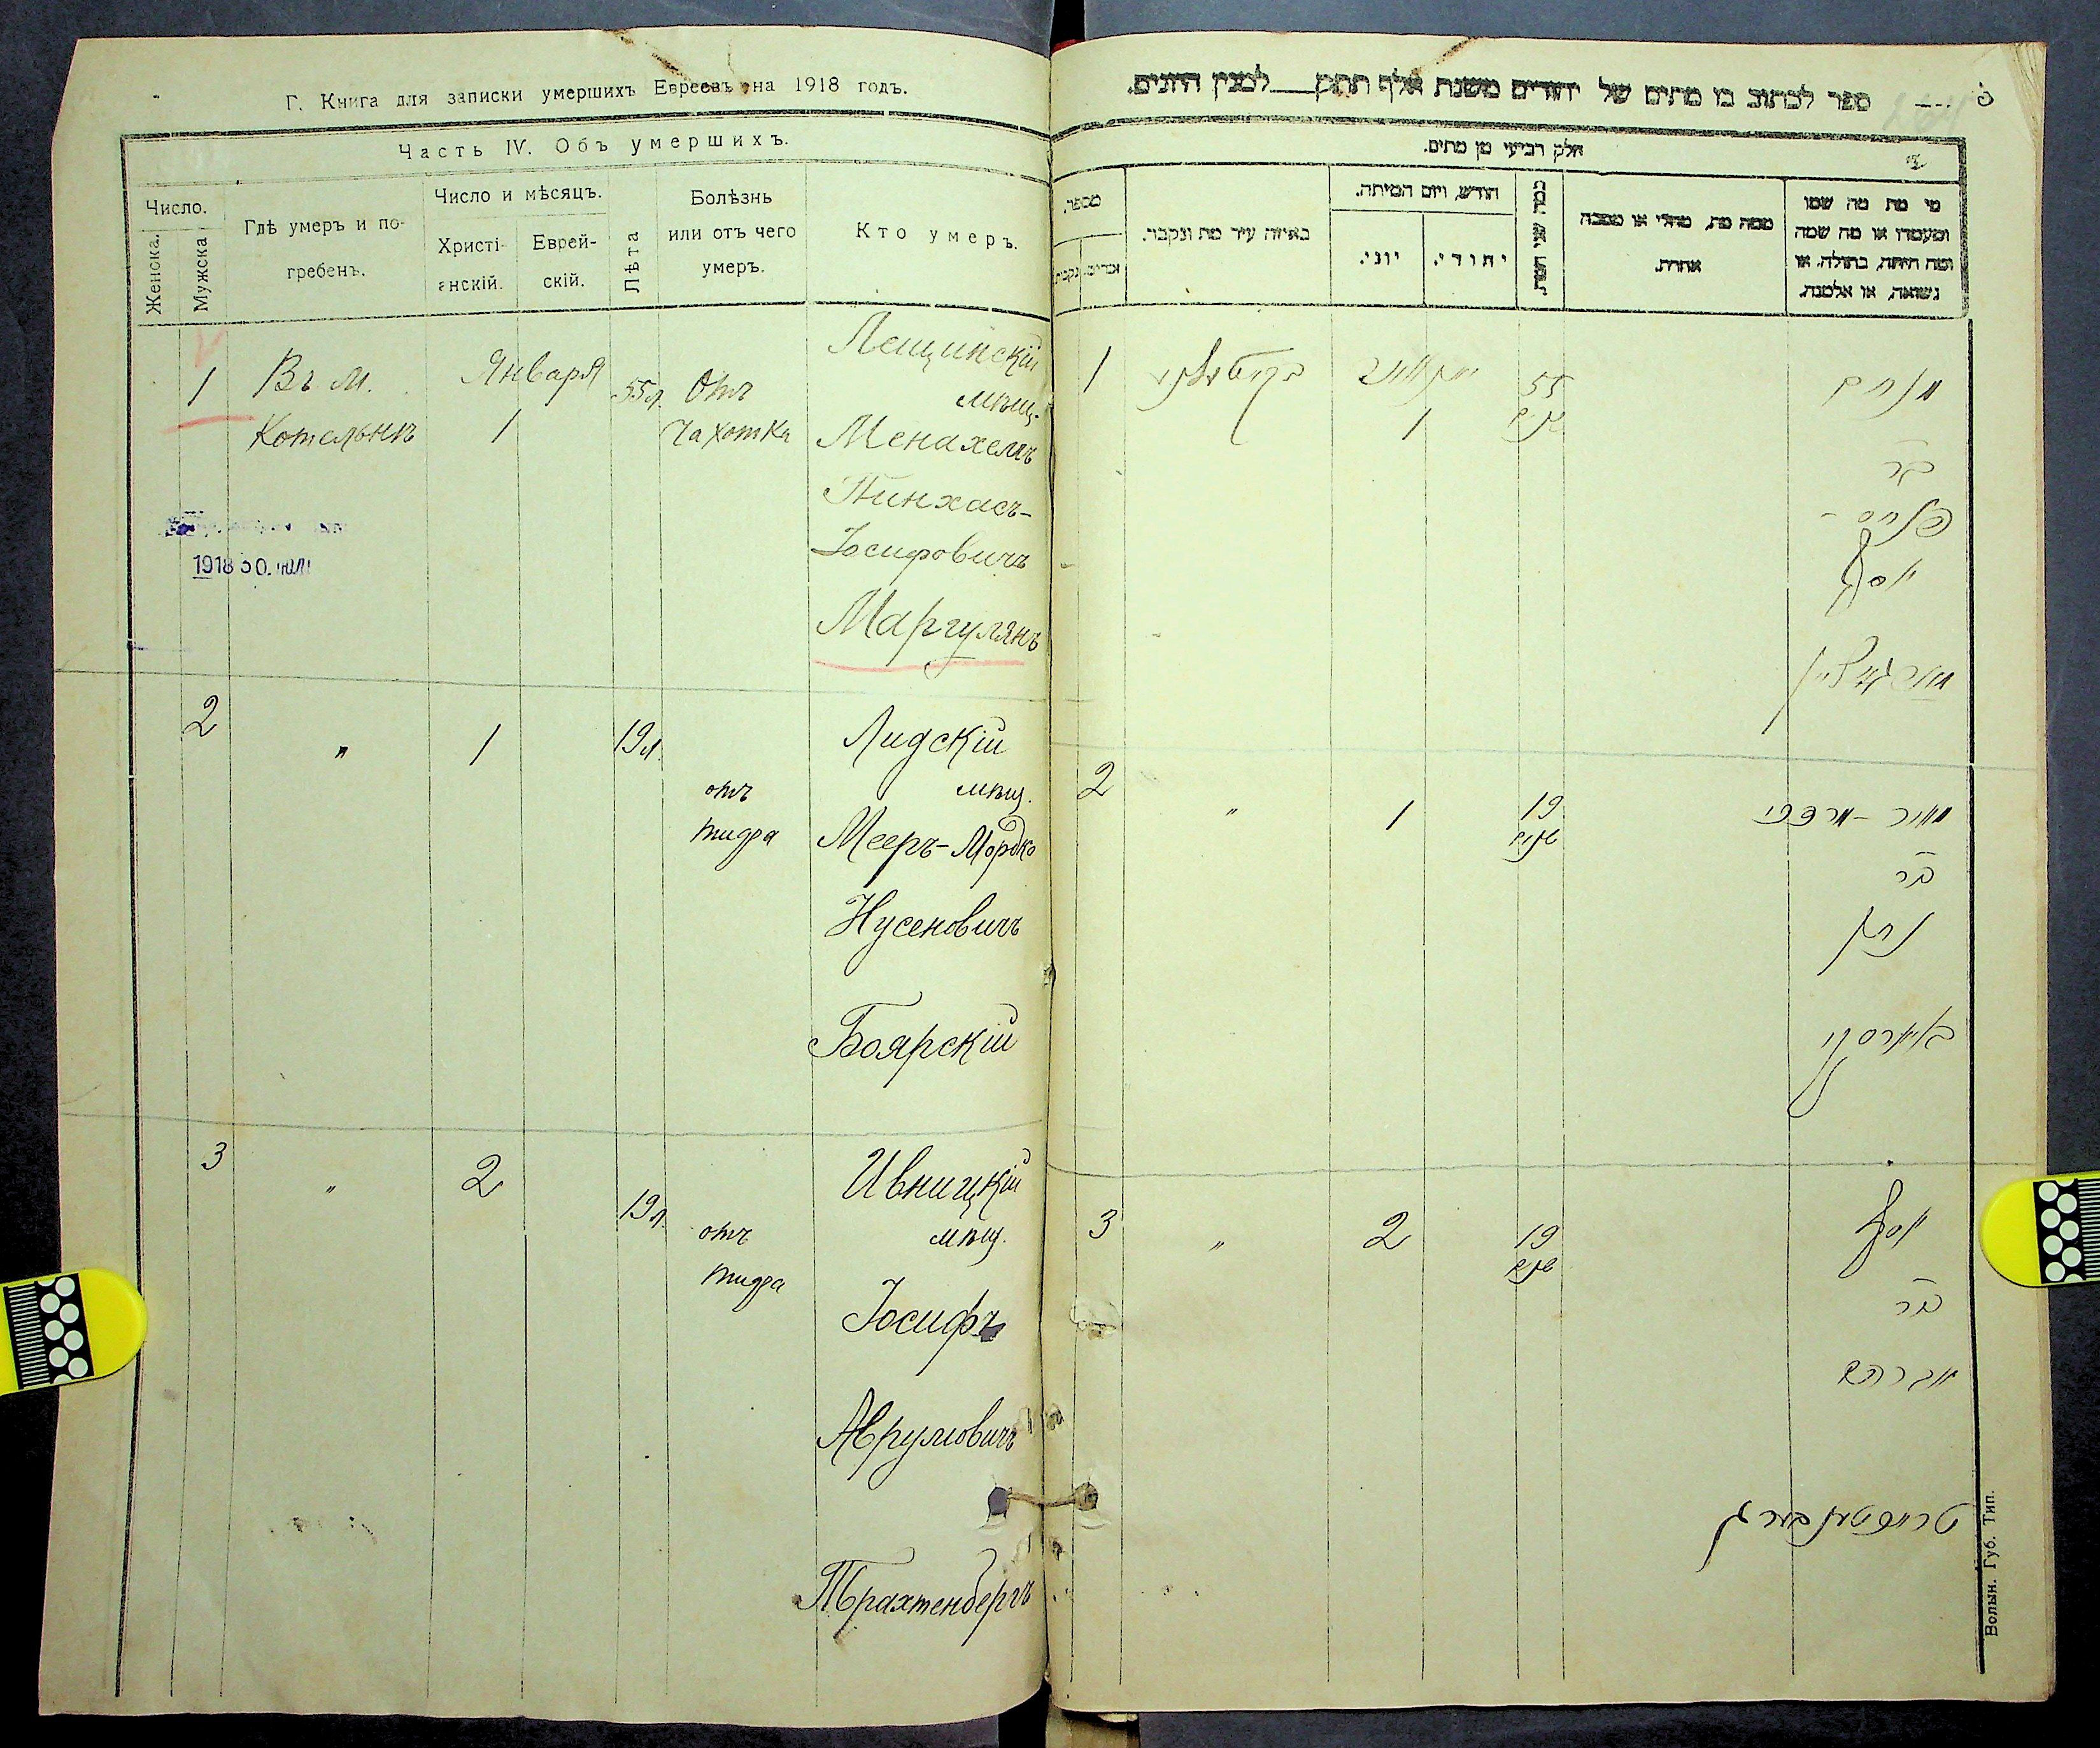 Г. Книга для записки умершихъ Евреевъ на 1918 годъ.
Часть IV. Объ умершихъ.
Число.
Женска.
Мужска
Гдѣ умеръ и по-
гребенъ.
Число и мѣсяцъ.
Христі-
анскій.
Еврей-
скій.
Лѣта
Болѣзнь
или отъ чего
умеръ.
Кто умеръ.
1
Въ м.
Котельнѣ
Января
1
55 л.
Отъ
Чахотка
Лещинскій
мѣщ.
Менахемъ
Пинхасъ-
Іосифовичъ
Маргулянъ
1918
2
"
1
19 л.
отъ
тифа
Лидскій
мѣщ.
Мееръ-Мордко
Нусеновичъ
Боярскій
3
"
2
19 л.
отъ
тифа
Ивницкій
мѣщ.
Іосифъ
Аврумовичъ
Трахтенбергъ
ספר לכתוב בו מתים של יהודים משנת אלף תתק למנין היונים.
חלק רביעי מן מתים.
מספר.
זכרים.
נקבות
באיזה עיר מת ונקבר.
חודש, ויום המיתה.
יוני.
יהודי.
כמה שני
ממה מת, מחלי או מסבה
אחרת.
מי מת מה שמו
ומעמדו או מה שמה
ומה היתה, בתולה, או
נשואה, או אלמנה.
1
יאנואר
1
55
שנים
מנחם
בר
פנחס -
יוסף
2
"
1
19
שנים
מאיר - מרדכי
בר
נתן
באיארסקי
3
"
2
19
שנים
יוסף
בר
אברהם
טראכטענבערג
Волын. Губ. Тип.